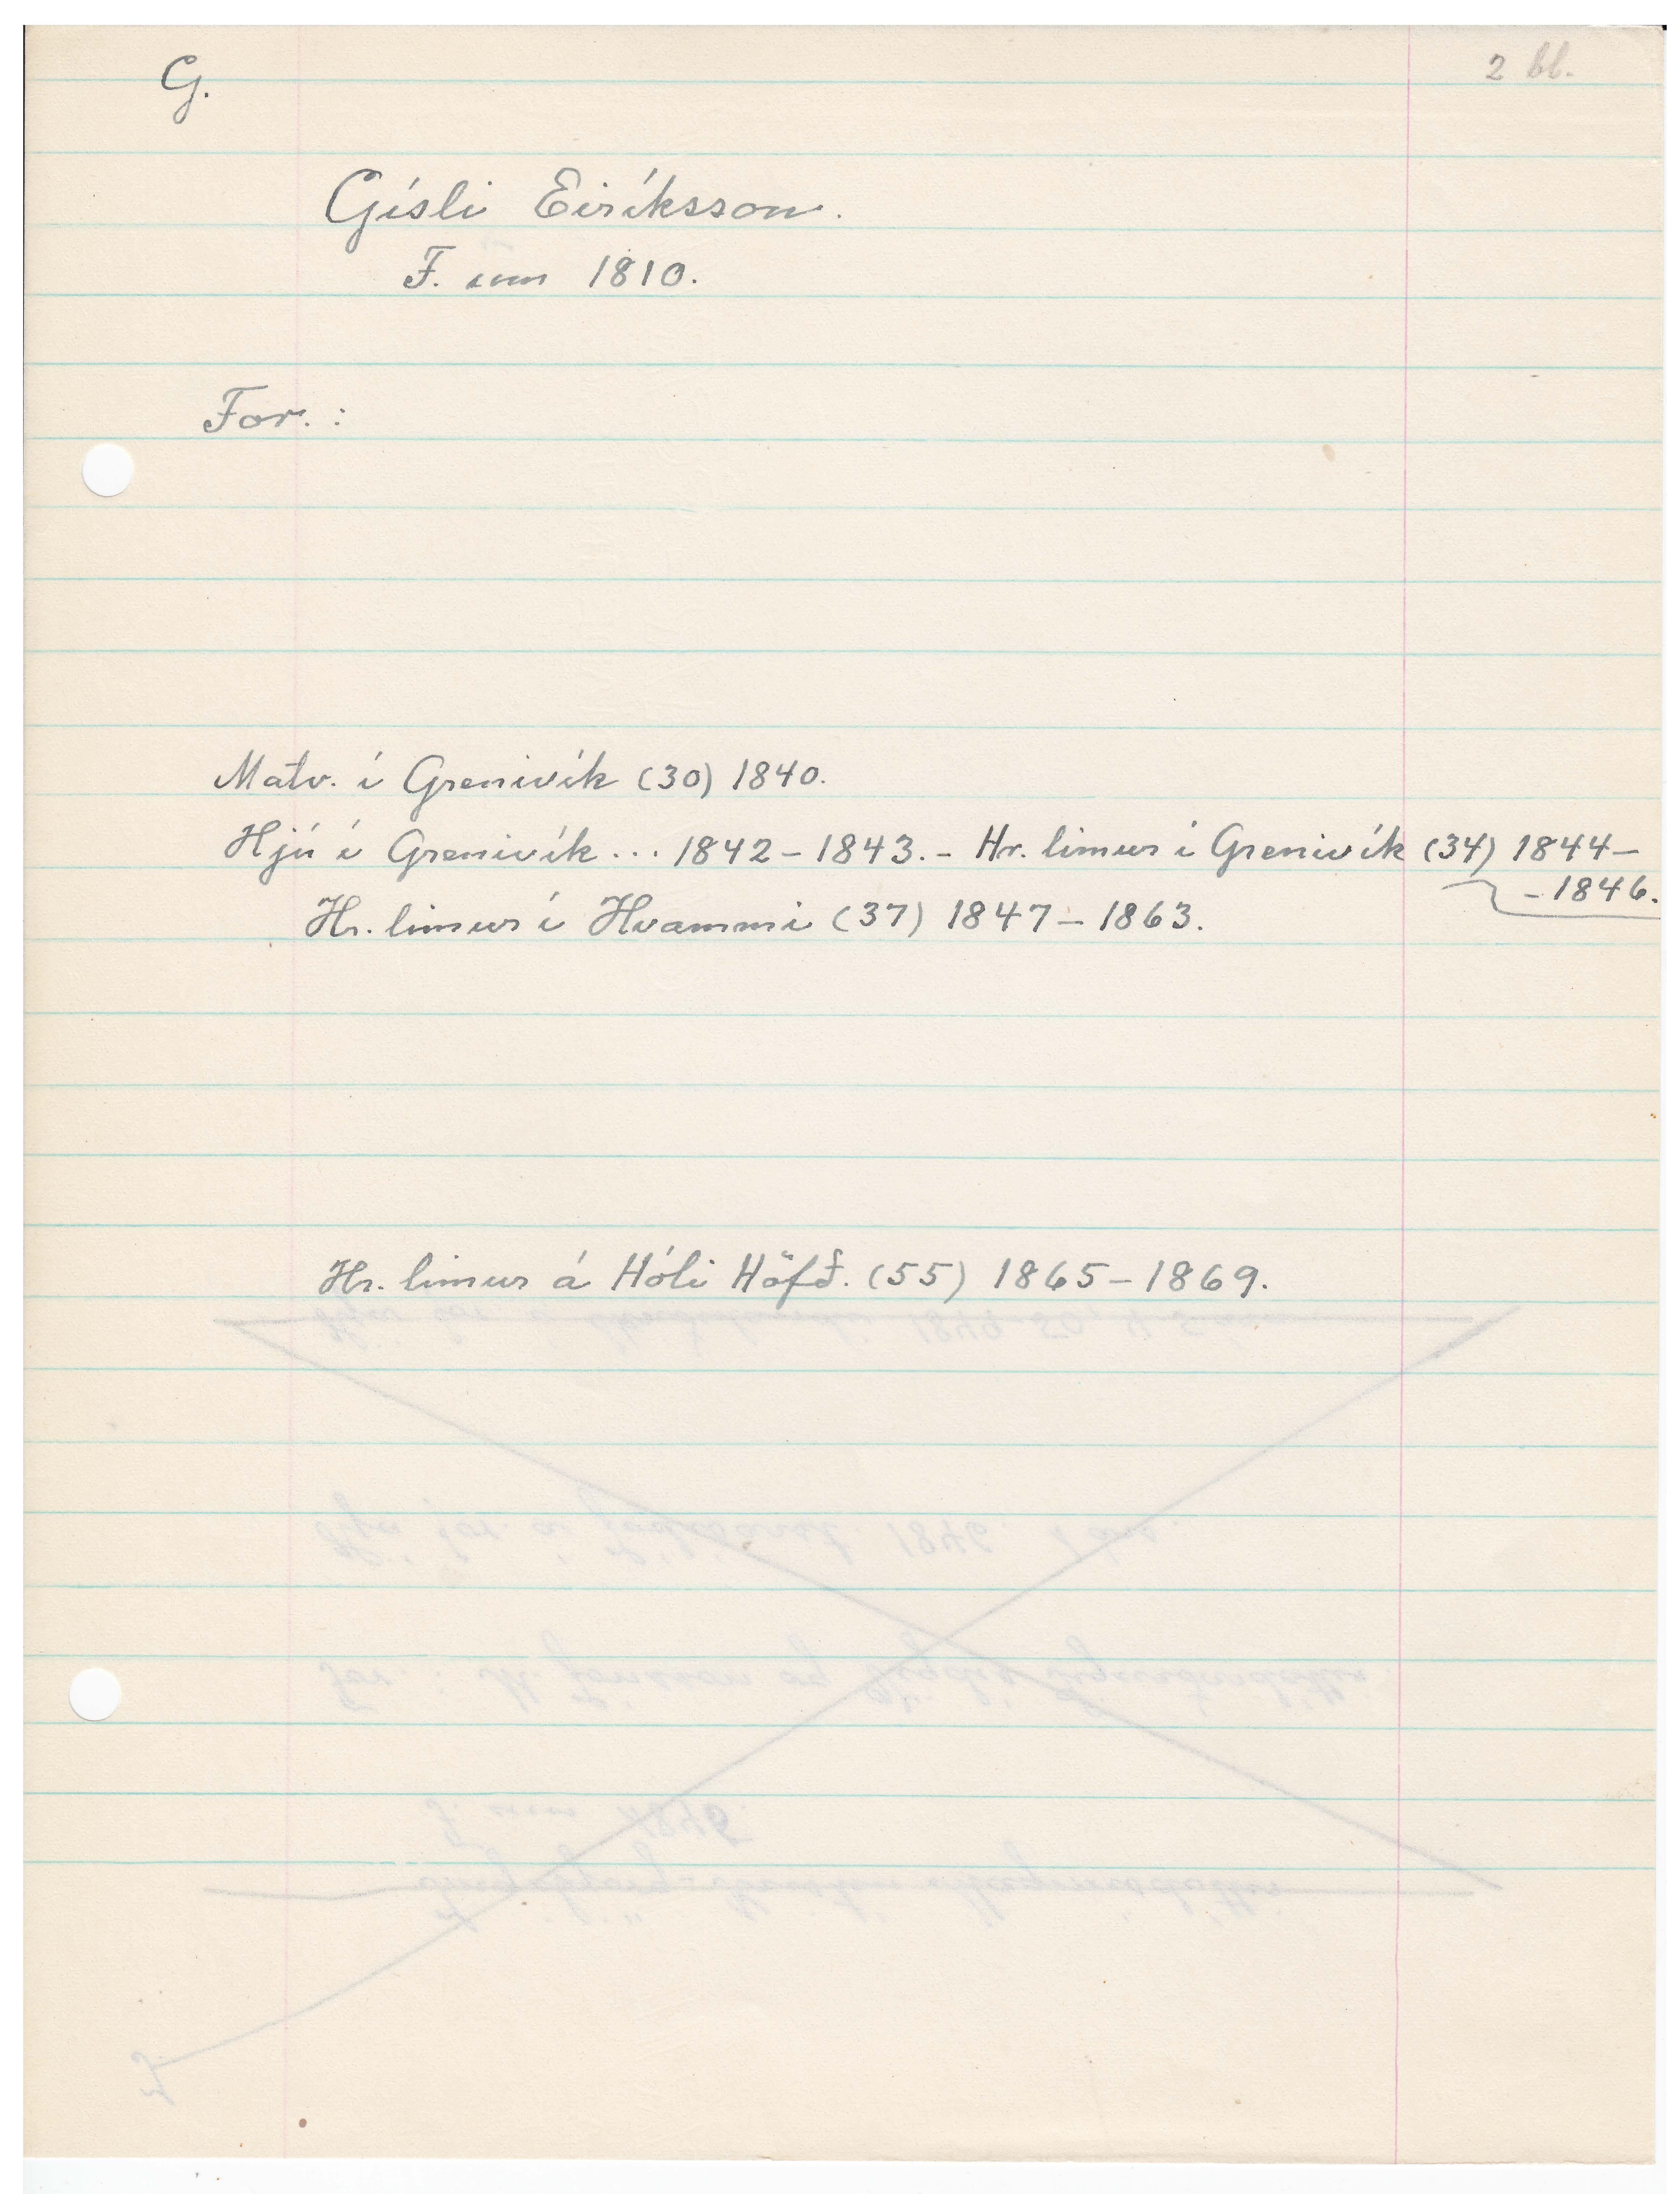 G.
2 bl.
Gísli Eiríksson.
F. um 1810.
For. :
Matv. í Grenivík (30) 1840.
Hjú í Grenivík ... 1842 - 1843. - Hr. limur í Grenivík (34) 1844 -
- 1846.
Hr. limur í Hvammi (37) 1847 - 1863.
Hr. limur á Hóli Höfð. (55) 1865 - 1869.